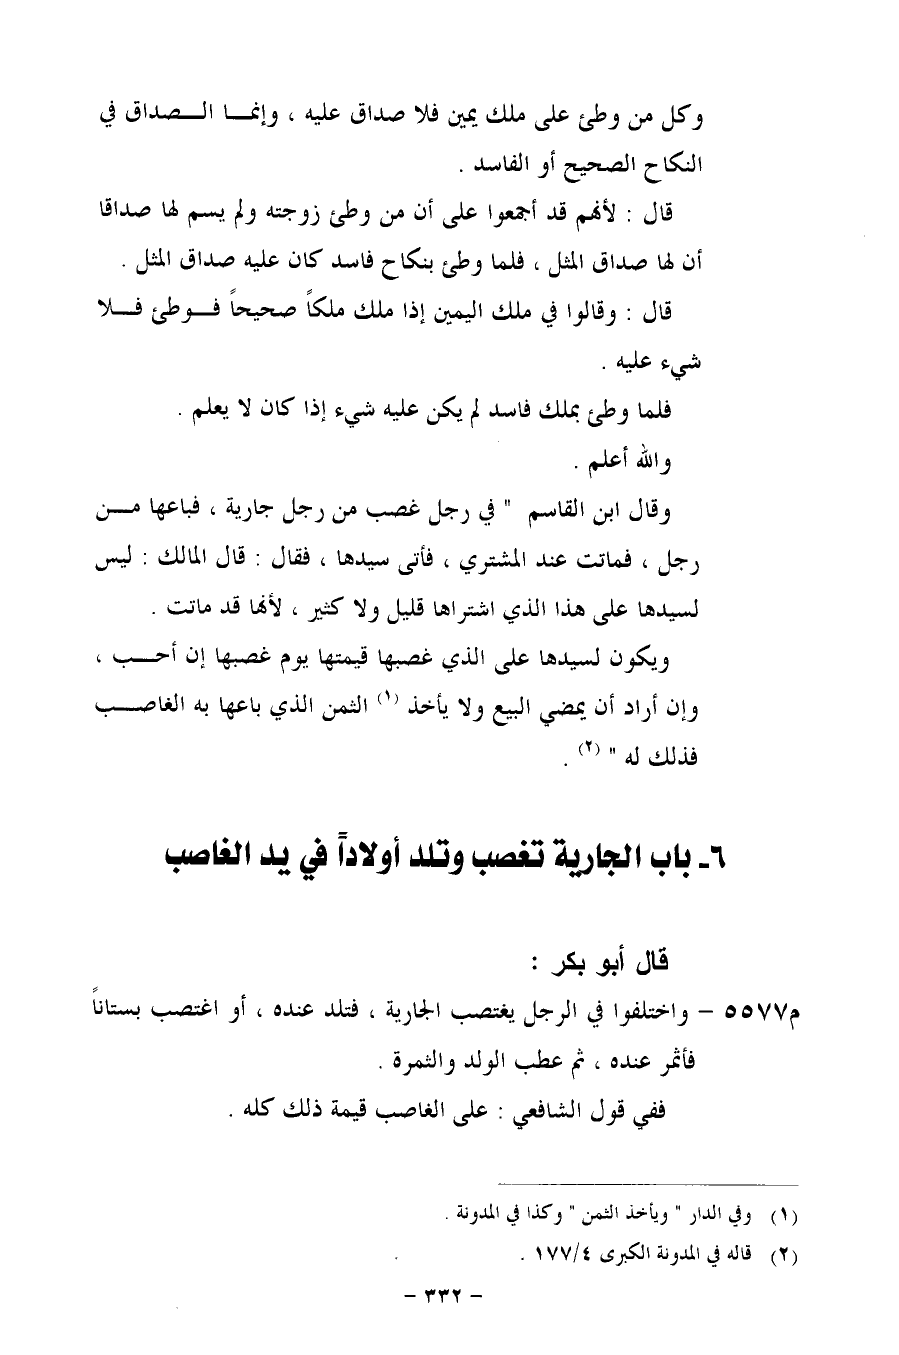 وكل من وطئ على ملك يمين فلا صداق عليه ، وإنمـــا الـــصداق في
النكاح الصحيح أو الفاسد .
قال : لأنهم قد أجمعوا على أن من وطئ زوجته ولم يسم لها صداقا
أن لها صداق المثل ، فلما وطئ بنكاح فاسد كان عليه صداق المثل .
قال : وقالوا في ملك اليمين إذا ملك ملكاً صحيحاً فــوطئ فــلا
شيء عليه .
فلما وطئ بملك فاسد لم يكن عليه شيء إذا كان لا يعلم .
والله أعلم .
وقال ابن القاسم " في رجل غصب من رجل جارية ، فباعها مـــن
رجل ، فماتت عند المشتري ، فأتى سيدها ، فقال : قال المالك : ليس
لسيدها على هذا الذي اشتراها قليل ولا كثير ، لأنها قد ماتت .
ويكون لسيدها على الذي غصبها قيمتها يوم غصبها إن أحـــب ،
وإن أراد أن يمضي البيع ولا يأخذ (١) الثمن الذي باعها به الغاصـــب
فذلك له " (٢) .
٦ـ باب الجارية تغصب وتلد أولاداً في يد الغاصب
قال أبو بكر :
م٥٥٧٧ – واختلفوا في الرجل يغتصب الجارية ، فتلد عنده ، أو اغتصب بستاناً
فأثمر عنده ، ثم عطب الولد والثمرة .
ففي قول الشافعي : على الغاصب قيمة ذلك كله .
(١) وفي الدار " ويأخذ الثمن " وكذا في المدونة .
(٢) قاله في المدونة الكبرى ١٧٧/٤ .
– ٣٣٢ –